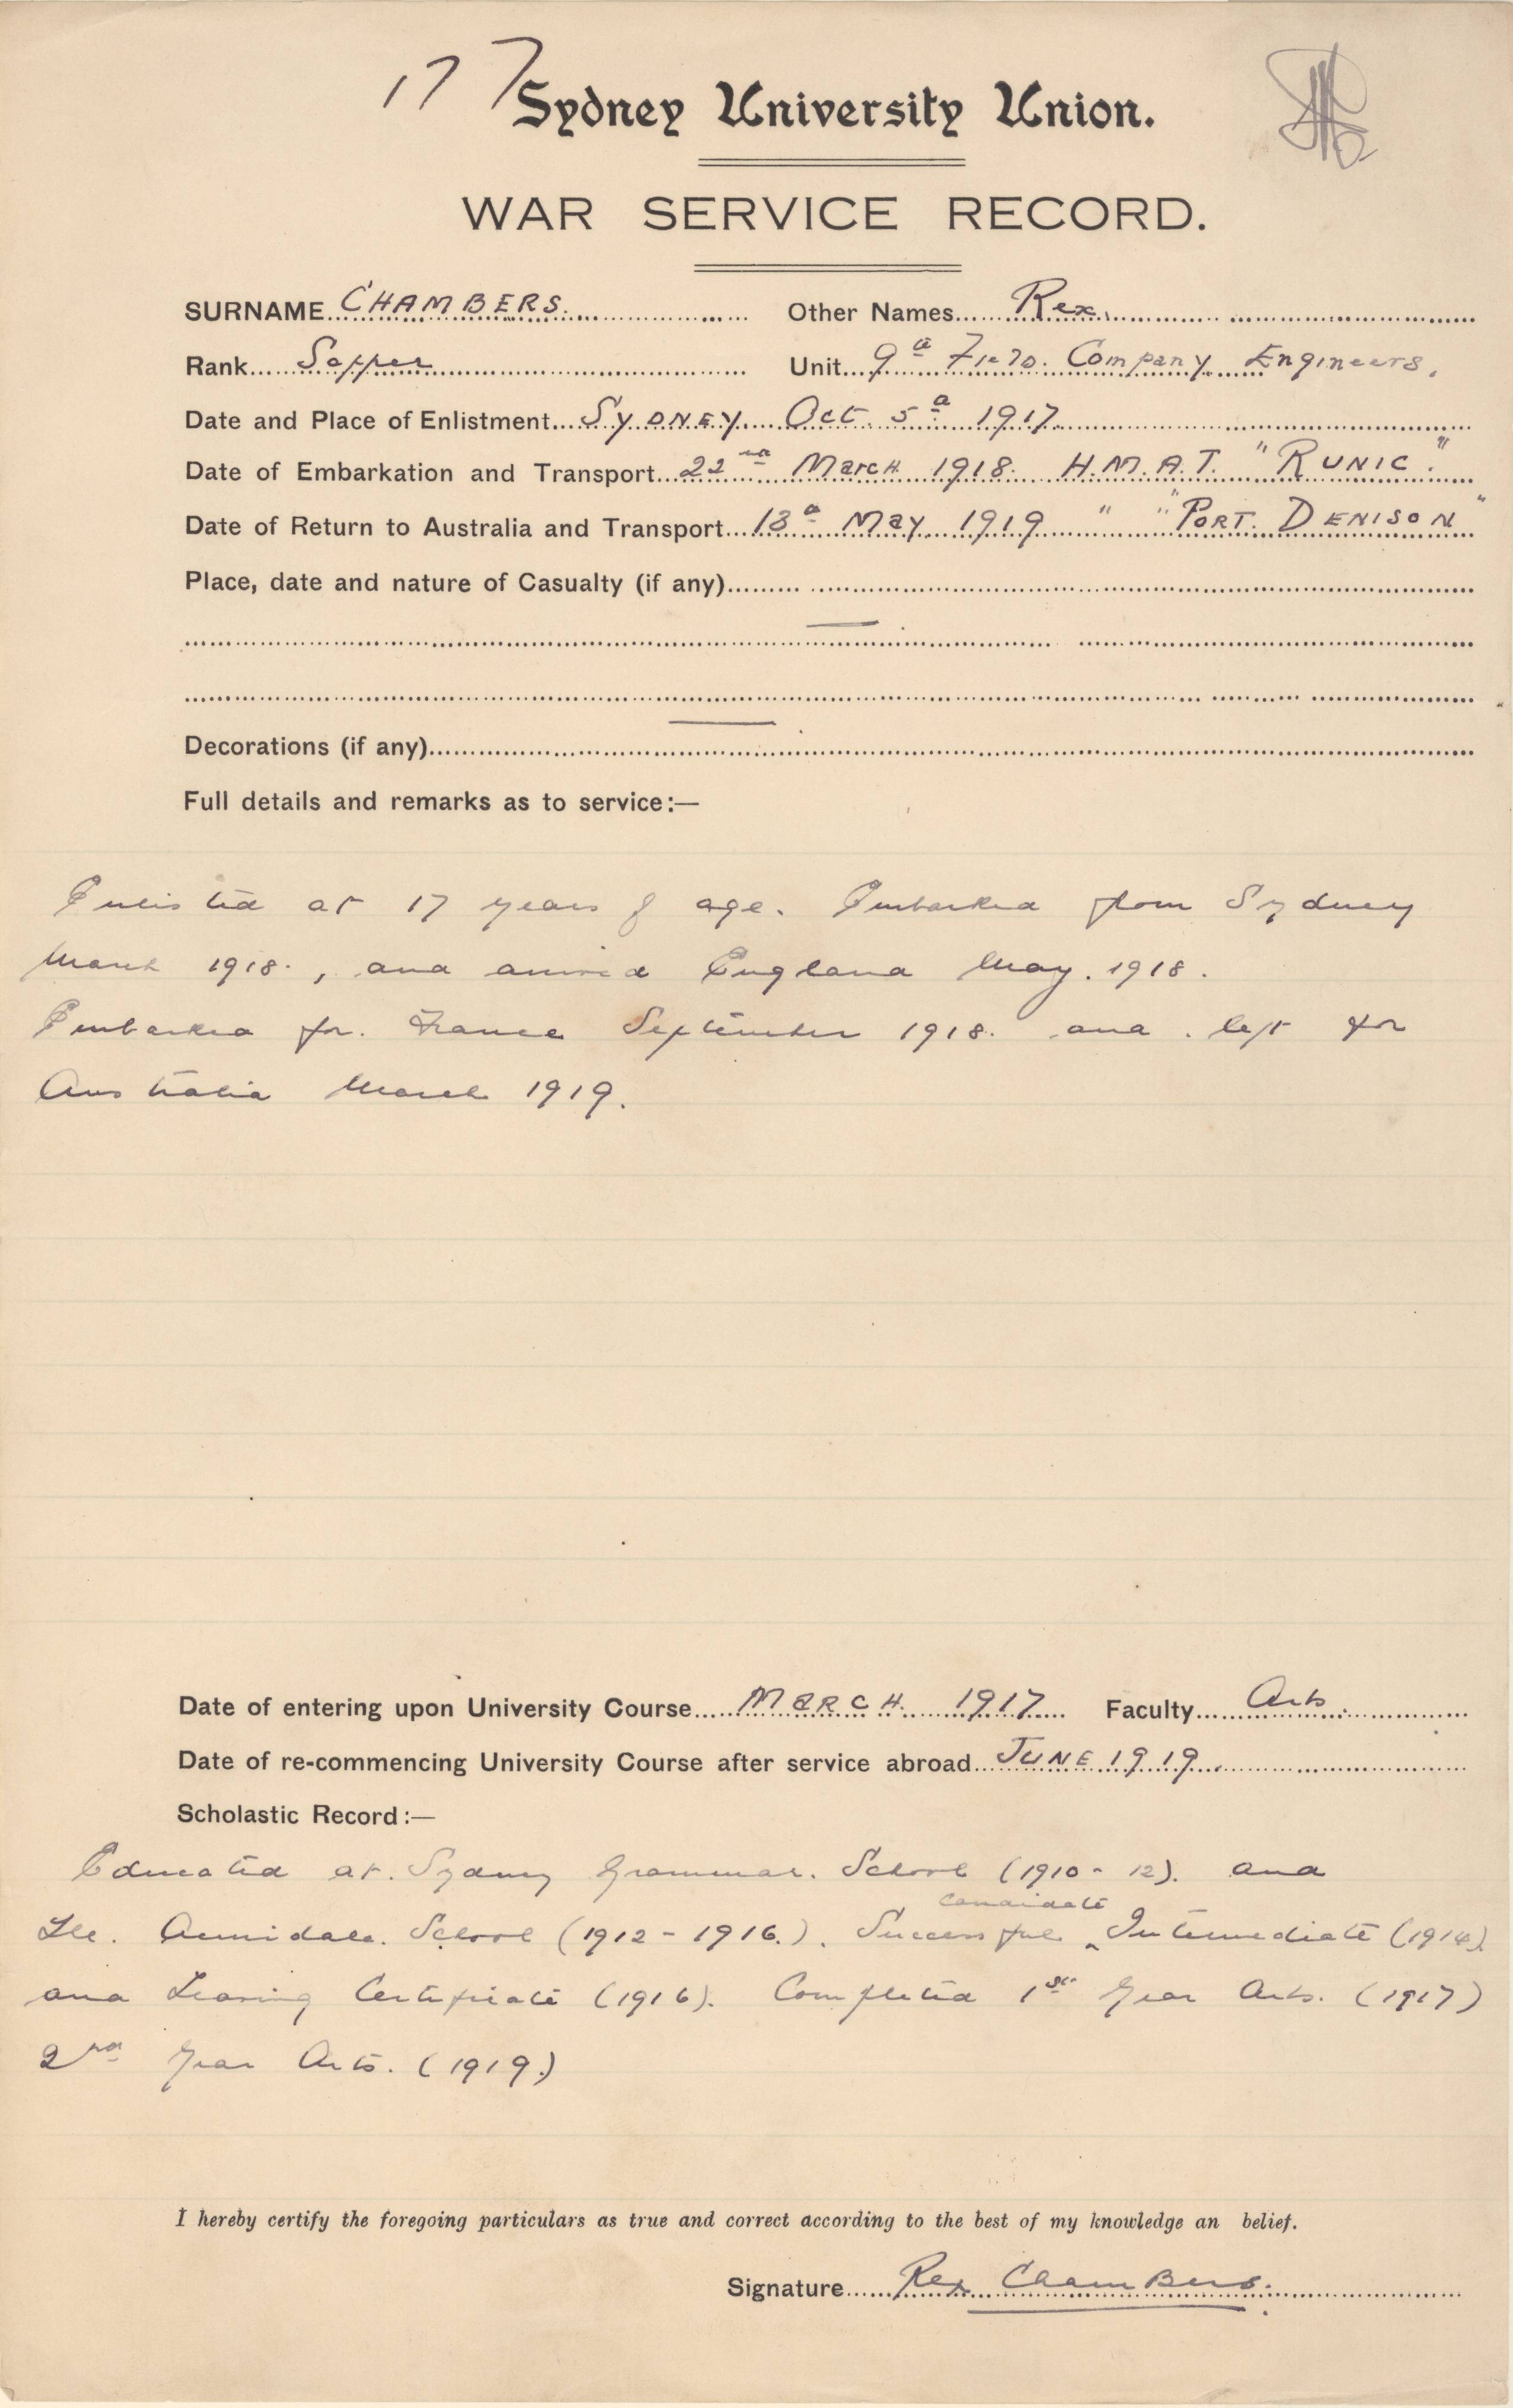 177
Sydney University Union.
WAR SERVICE RECORD.
SURNAME CHAMBERS. Other Names Rex.
Rank Sapper Unit 9th Field Company Engineers.
Date and Place of Enlistment SYDNEY Oct 5th 1917
Date of Embarkation and Transport 22nd March 1918. H.M.A.T. "RUNIC."
Date of Return to Australia and Transport 13th May 1919 " "PORT DENISON"
Place, date and nature of Casualty (if any) —
Decorations (if any) —
Full details and remarks as to service:—
Enlisted at 17 years of age. Embarked from Sydney
March 1918., and arrived England May. 1918.
Embarked for. France September 1918. and. left for
Australia March 1919.
Date of entering upon University Course MARCH 1917 Faculty Arts
Date of re-commencing University Course after service abroad JUNE 1919.
Scholastic Record:—
Educated at. Sydney Grammar. School (1910-12). and
The. Armidale. School (1912-1916.). Successful candidate Intermediate (1914)
and Leaving Certificate (1916). Completed 1st Year Arts. (1917)
2nd Year Arts. (1919.)
I hereby certify the foregoing particulars as true and correct according to the best of my knowledge an belief.
Signature Rex Chambers.